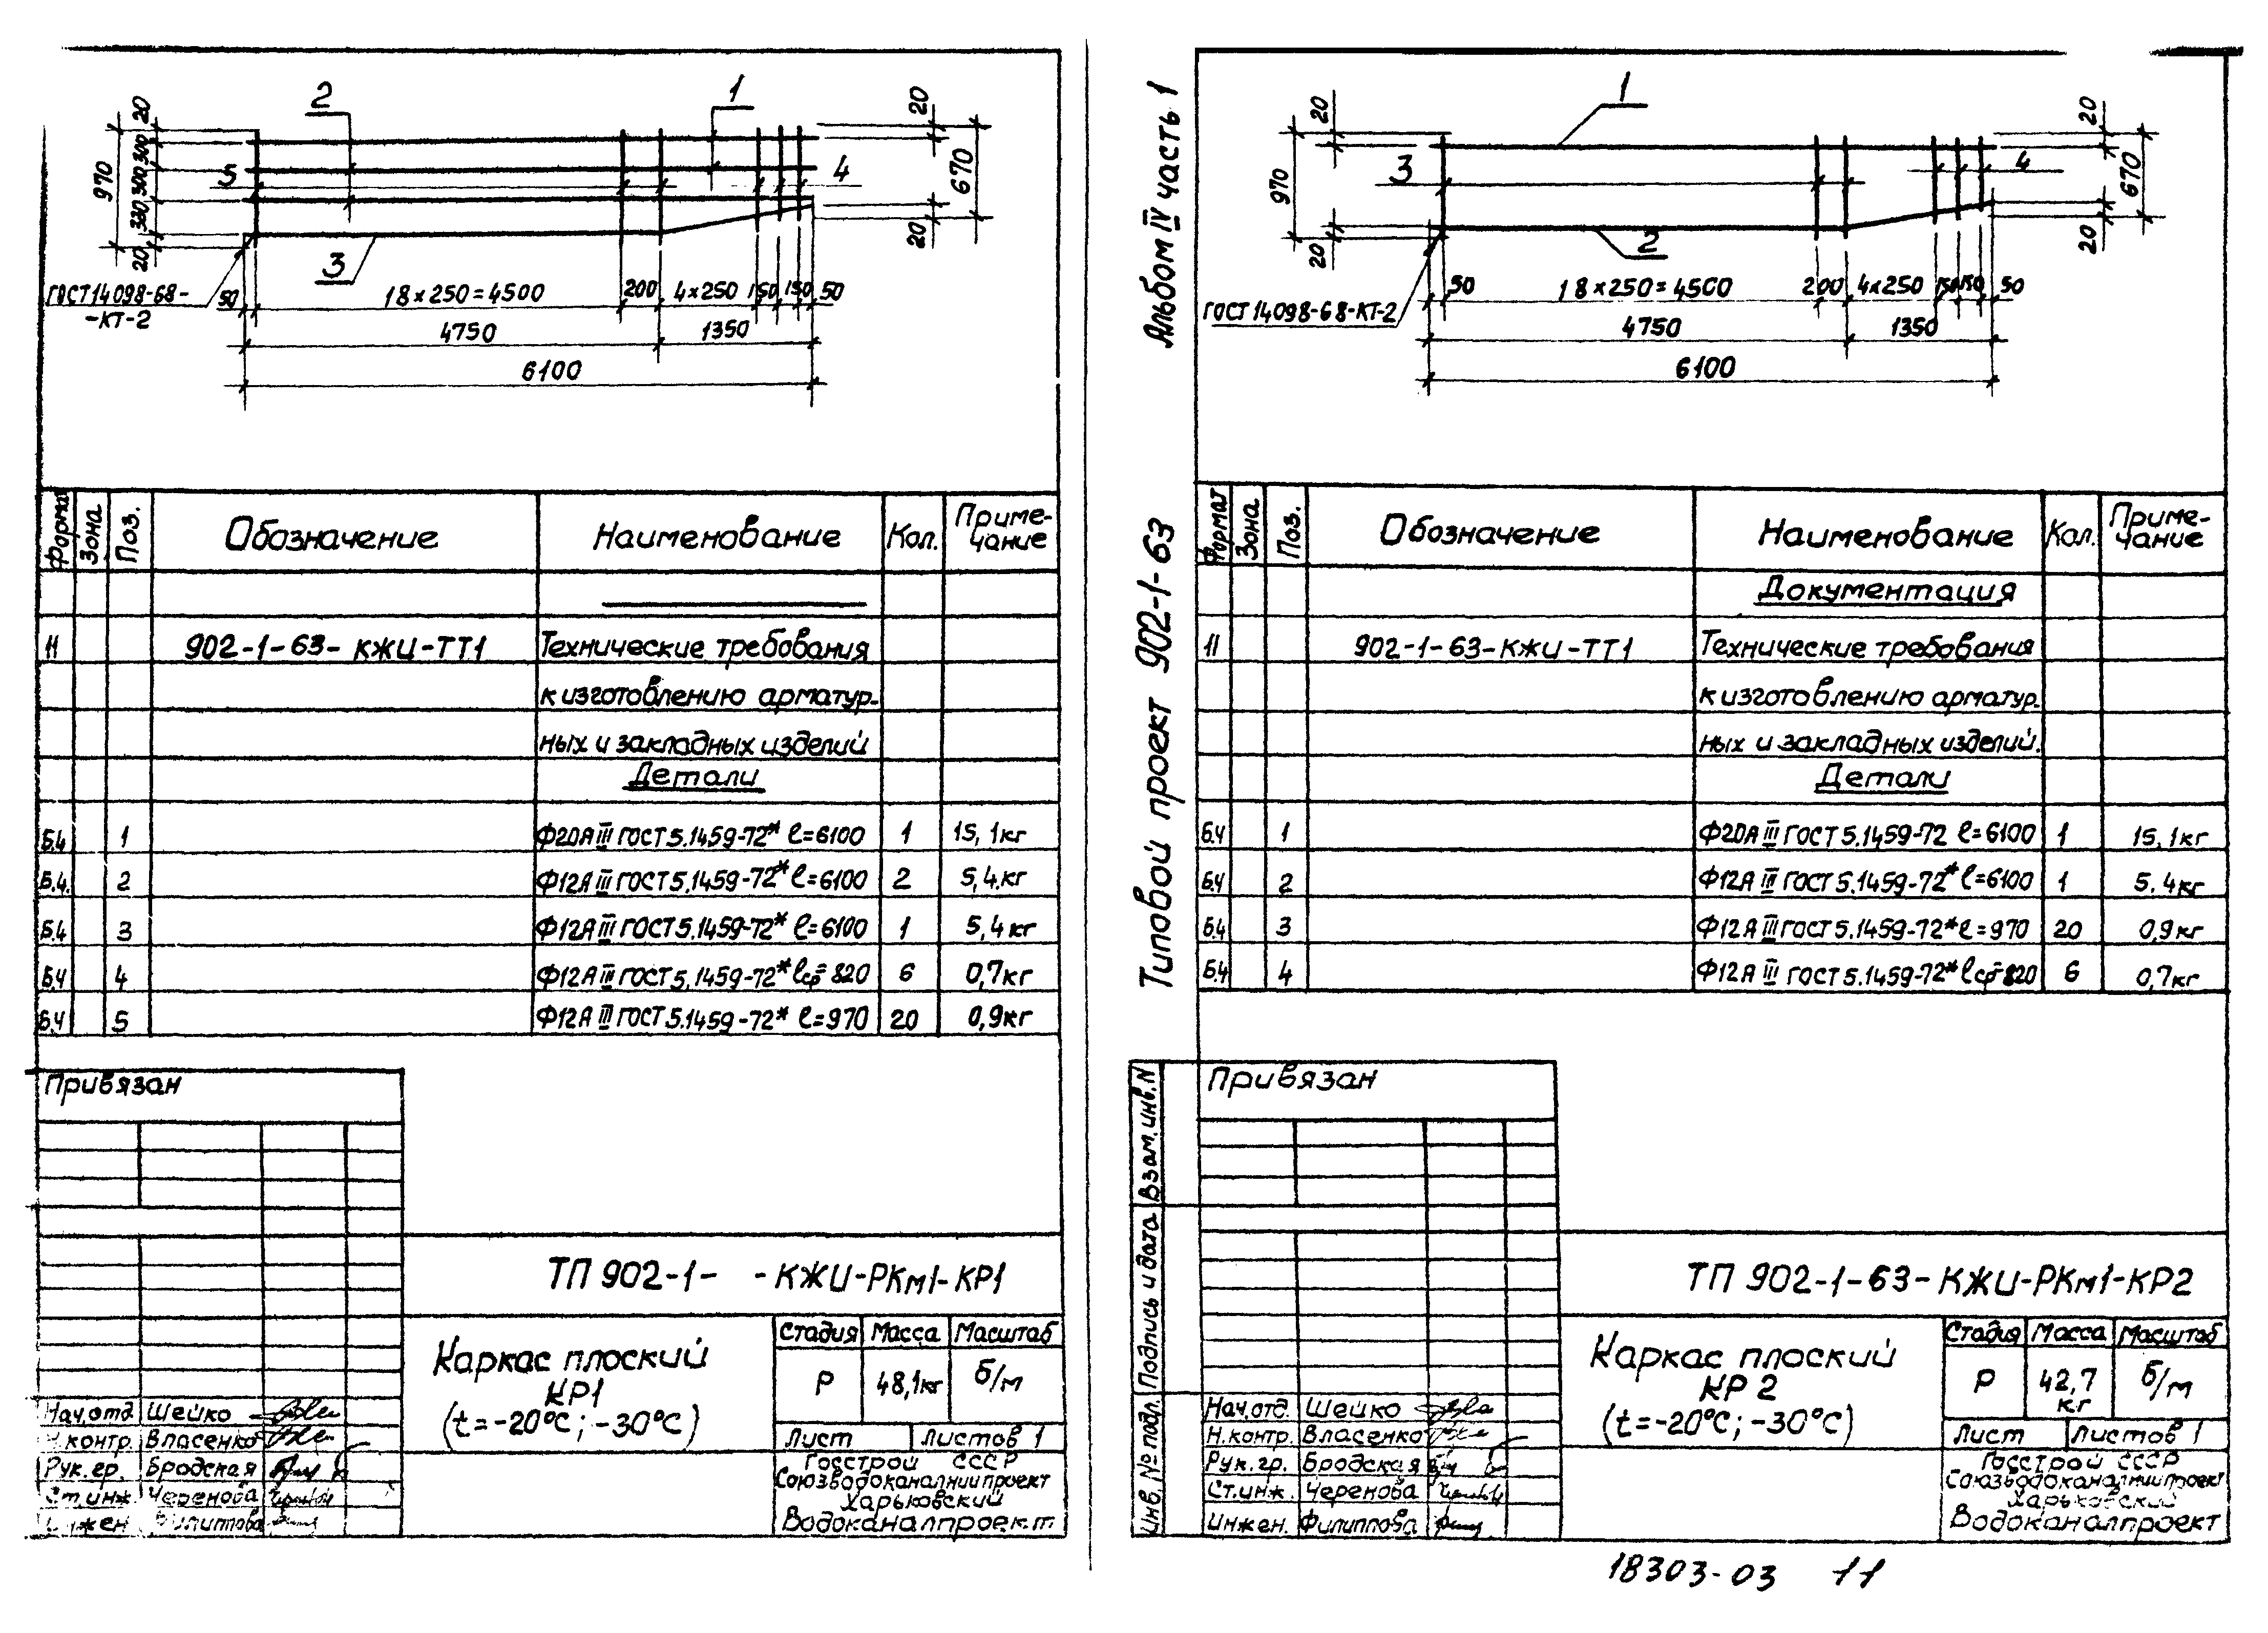 2
1
5
4
3
20
300
300
330
20
970
20
670
20
ГОСТ 14098-68-
-КТ-2
50
18×250=4500
200
4×250
150
150
50
4750
1350
6100
Формат
Зона
Поз.
Обозначение
Наименование
Кол.
Приме-
чание
11
902-1-63-КЖИ-ТТ1
Технические требования
к изготовлению арматур-
ных и закладных изделий
Детали
Б.4 1 Ф20АIII ГОСТ 5.1459-72* ℓ=6100 1 15,1кг
Б.4. 2 Ф12АIII ГОСТ 5.1459-72* ℓ=6100 2 5,4.кг
Б.4 3 Ф12АIII ГОСТ 5.1459-72* ℓ=6100 1 5,4кг
Б.4 4 Ф12АIII ГОСТ 5.1459-72* ℓср=820 6 0,7кг
Б.4 5 Ф12АIII ГОСТ 5.1459-72* ℓ=970 20 0,9кг
Привязан
ТП 902-1- -КЖИ-РКм1-КР1
Каркас плоский
КР1
(t=-20°С; -30°С)
Стадия Масса Масштаб
Р 48,1кг б/м
Лист Листов 1
Госстрой СССР
Союзводоканалниипроект
Харьковский
Водоканалпроект
Нач.отд. Шейко
Н.контр. Власенко
Рук.гр. Бродская
Ст.инж. Черенова
Инжен. Филиппова
Альбом IV часть 1
Типовой проект 902-1-63
1
3
4
2
20
970
20
20
670
20
ГОСТ 14098-68-КТ-2
50
18×250=4500
200
4×250
150
150
50
4750
1350
6100
Формат
Зона
Поз.
Обозначение
Наименование
Кол.
Приме-
чание
Документация
11
902-1-63-КЖИ-ТТ1
Технические требования
к изготовлению арматур-
ных и закладных изделий.
Детали
Б.4 1 Ф20АIII ГОСТ 5.1459-72 ℓ=6100 1 15,1кг
Б.4 2 Ф12АIII ГОСТ 5.1459-72* ℓ=6100 1 5.4кг
Б.4 3 Ф12АIII ГОСТ 5.1459-72* ℓ=970 20 0,9кг
Б.4 4 Ф12АIII ГОСТ 5.1459-72* ℓср=820 6 0,7кг
Привязан
Взам.инв.N
Подпись и дата
Инв. № подл.
ТП 902-1-63-КЖИ-РКм1-КР2
Каркас плоский
КР 2
(t=-20°С; -30°С)
Стадия Масса Масштаб
Р 42,7 кг б/м
Лист Листов 1
Госстрой СССР
Союзводоканалниипроект
Харьковский
Водоканалпроект
Нач.отд. Шейко
Н.контр. Власенко
Рук.гр. Бродская
Ст.инж. Черенова
Инжен. Филиппова
18303-03 11